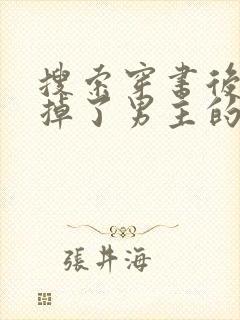 搜索穿書後
掉了男主的
張井海